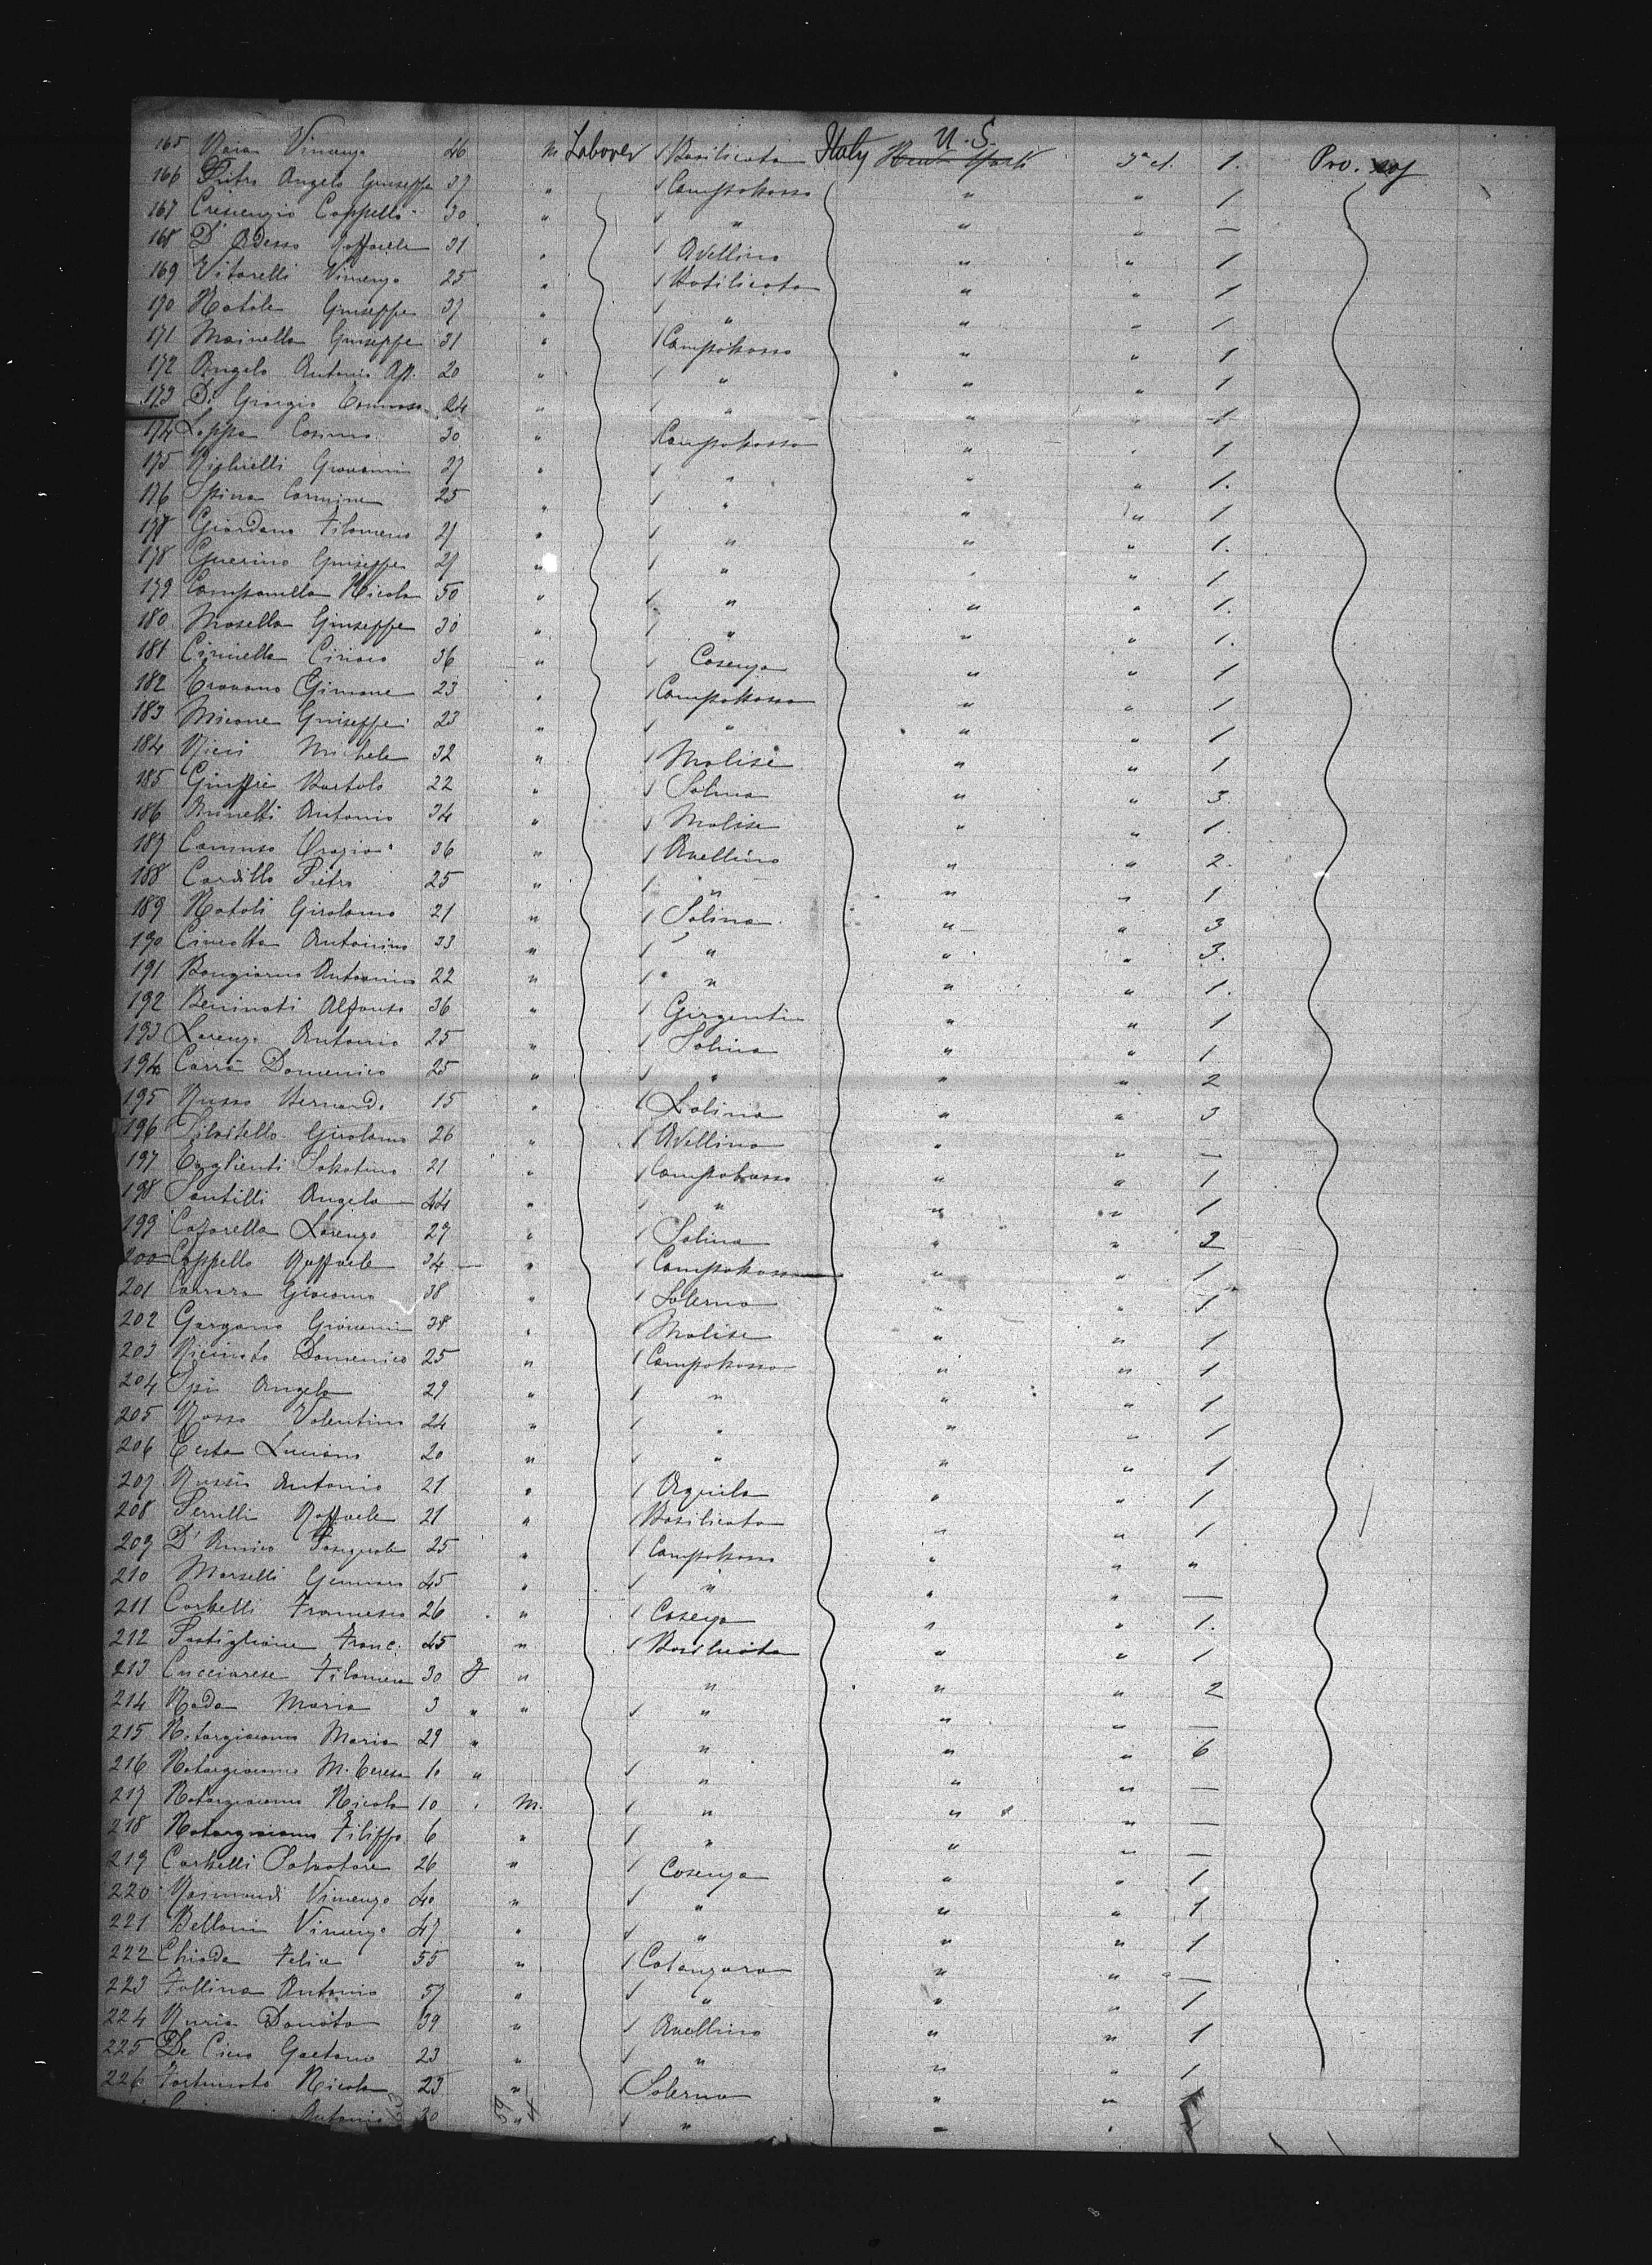 U. S.
165 Vincenzo 46 m Laborer Basilicata Italy New York 3a cl. 1. Pro. soj
166 Pietro Angelo Giuseppe 37 " Campobasso " " 1
167 Crescenzio Cappelli 30 " " " " —
168 D' Adesso Raffaele 31 " Avellino " " 1
169 Vitarelli Vincenzo 25 " Basilicata " " 1
170 Natale Giuseppe 37 " " " " 1
171 Mainella Giuseppe 31 " Campobasso " " 1
172 Angelo Antonio 20 " " " " 1
173 Di Giorgio Tommaso 24 " " " " 1
174 Loppa Cosimo 30 " Campobasso " " 1
175 Giovanni 27 " " " " 1.
176 Spina Carmine 25 " " " " 1
178 Giordano Filomeno 21 " " " " 1.
178 Guerino Giuseppe 27 " " " " 1
179 Campanella Nicola 50 " " " " 1.
180 Masella Giuseppe 30 " " " " 1.
181 Ciriaco 36 " Cosenza " " 1
182 23 " Campobasso " " 1
183 Micone Giuseppe 23 " " " " 1
184 Ricci Michele 32 " Molise " " 1
185 Giuffrè Bartolo 22 " Salina " " 3
186 Antonio 34 " Molise " " 1.
187 Caruso Orazio 36 " Avellino " " 2.
188 Cardillo Pietro 25 " " " " 1
189 Natoli Girolamo 21 " Salina " " 3
190 Cincotta Antonino 33 " " " " 3.
191 Bongiorno Antonino 22 " " " " 1.
192 Beninati Alfonso 36 " Girgenti " " 1
193 Lorenzo Antonio 25 " Salina " " 1
194 Carrà Domenico 25 " " " " 2
195 Russo Bernardo 15 " Salina " " 3
196 Girolamo 26 " Avellino " " —
197 Taglienti Sabatino 21 " Campobasso " " 1
198 Santilli Angelo 44 " " " " 1
199 Cafarella Lorenzo 27 " Salina " " 2
200 Cappello Raffaele 34 " Campobasso " " 1
201 Carrara Giacomo 38 " Salerno " " 1
202 Gargano Giovanni 38 " Molise " " 1
203 Domenico 25 " Campobasso " " 1
204 Angelo 29 " " " " 1
205 Rosso Valentino 24 " " " " 1
206 Testa Luciano 20 " " " " 1
207 Russo Antonio 21 " Aquila " " 1
208 Serrilli Raffaele 21 " Basilicata " " 1
209 D' Amico Pasquale 25 " Campobasso " " "
210 Marselli Gennaro 45 " " " " —
211 Corbelli Francesco 26 " Cosenza " " 1.
212 Postiglione Franc. 45 " Basilicata " " 1
213 Cucciarese Filomena 30 f " " " " 2
214 Rada Maria 3 " " " " " —
215 Notargiacomo Maria 29 " " " " 6
216 Notargiacomo M. Teresa 10 " " " " —
217 Notargiacomo Nicola 10 m. " " " —
218 Notargiacomo Filippo 6 " " " " —
219 Corbelli Salvatore 26 " Cosenza " " 1
220 Raimondi Vincenzo 40 " " " " 1
221 Belloni Vincenzo 47 " " " " 1
222 Chiodo Felice 55 " Catanzaro " " —
223 Follina Antonio 57 " " " " 1
224 Donato 39 " Avellino " " 1
225 De Cicco Gaetano 23 " " " " 1
226 Fortunato Nicola 25 " Salerno " " 1
Antonio 30 " " " "